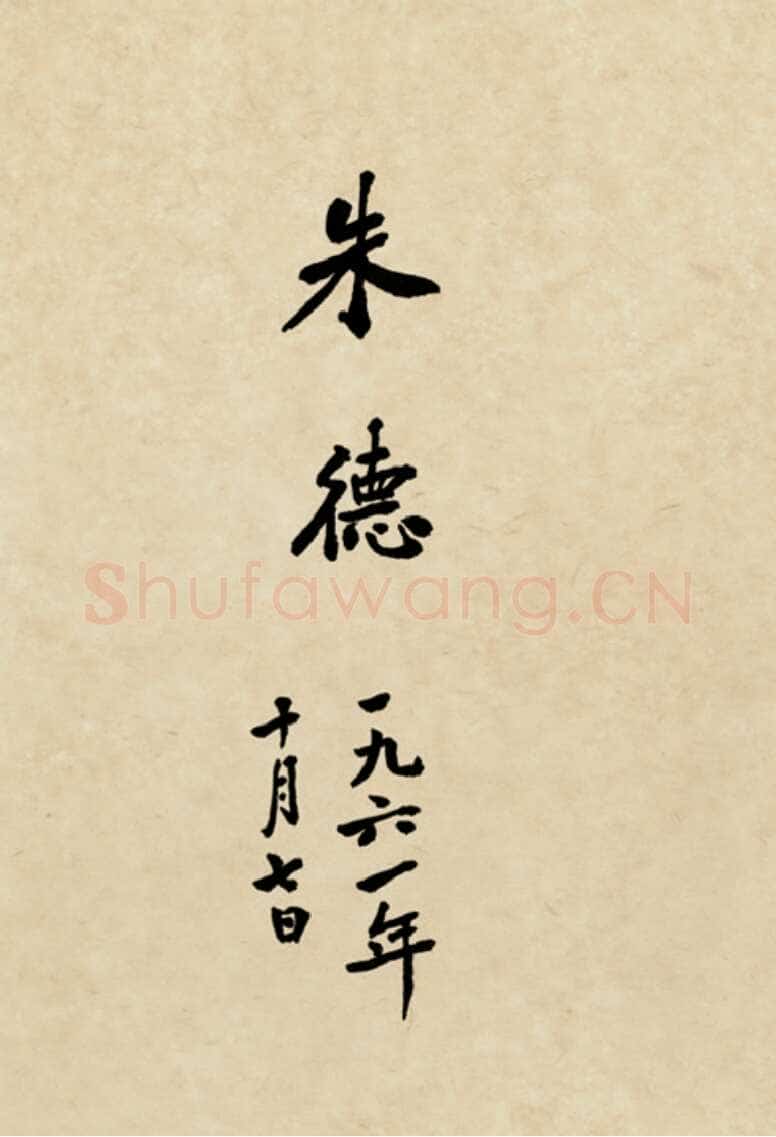 朱德
一九六一年
十月七日
Shufawang.CN